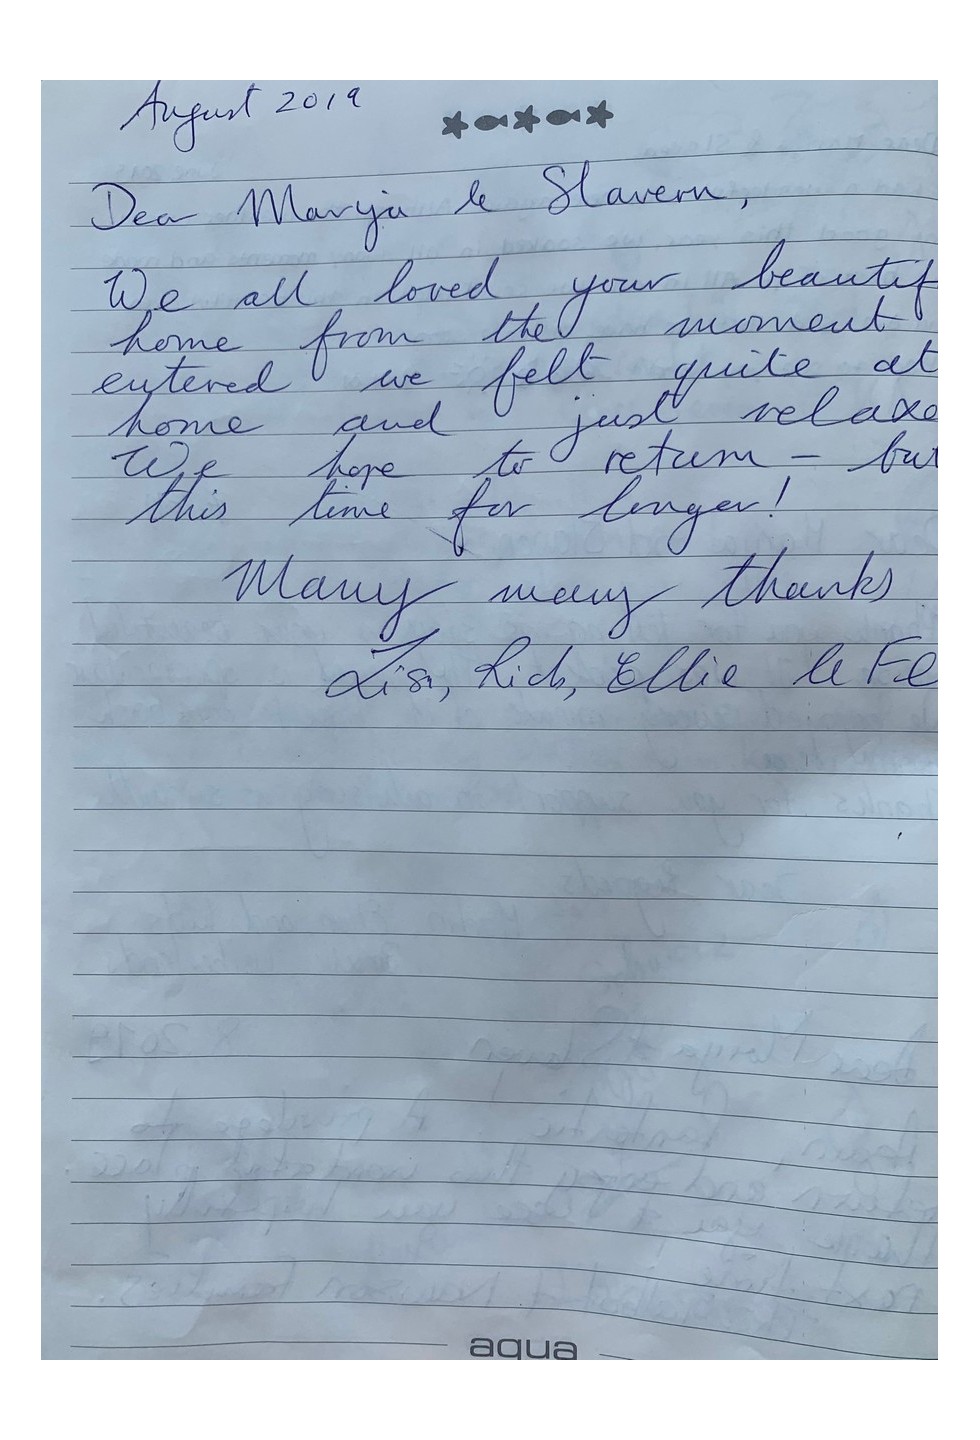 August 2019
Dear Marija & Slaven,
We all loved your beautif
home from the moment
entered we felt quite at
home and just relaxe
We hope to return – but
this time for longer!
Many many thanks
Lisa, Rich, Ellie & Fe
aqua